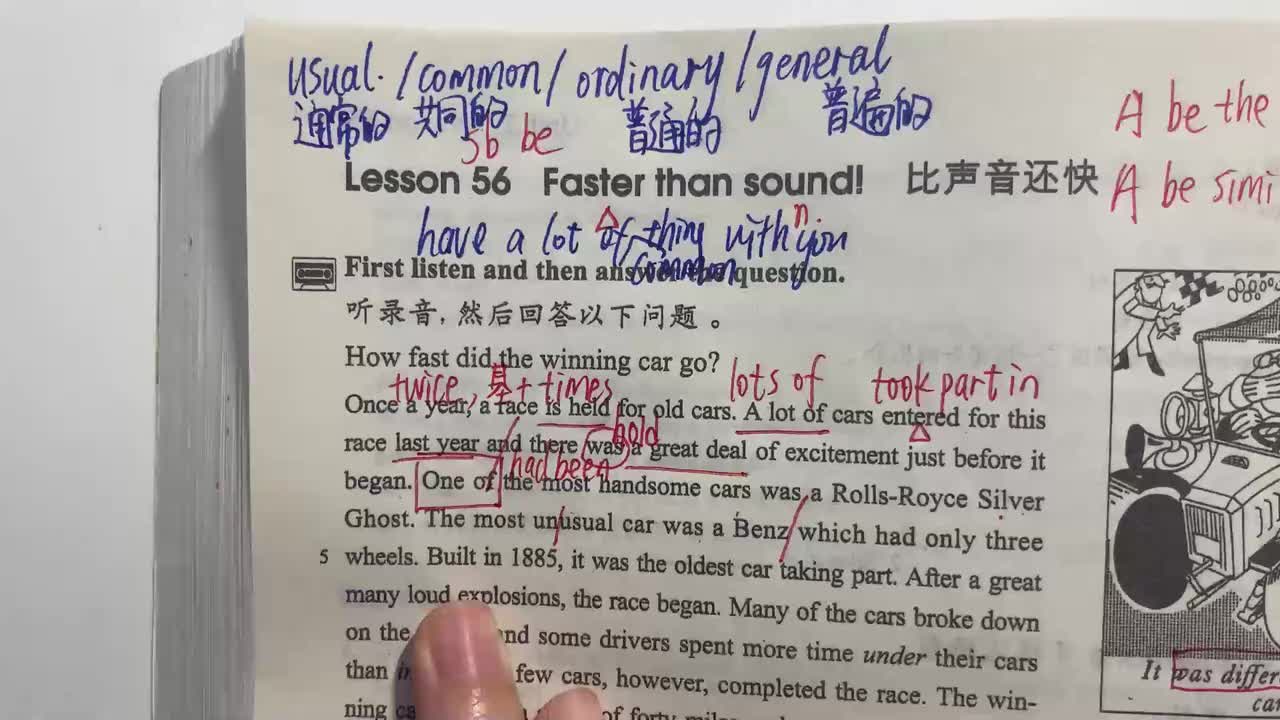 usual. / common / ordinary / general
通常的 共同的 普通的 普遍的
sb be
A be the
Lesson 56 Faster than sound! 比声音还快
A be simi
have a lot of thing with you
n.
common
First listen and then answer the question.
听录音，然后回答以下问题。
How fast did the winning car go?
twice, 基+times lots of took part in
Once a year, a race is held for old cars. A lot of cars entered for this
hold
race last year and there was a great deal of excitement just before it
had been
began. One of the most handsome cars was a Rolls-Royce Silver
Ghost. The most unusual car was a Benz which had only three
5 wheels. Built in 1885, it was the oldest car taking part. After a great
many loud explosions, the race began. Many of the cars broke down
on the and some drivers spent more time under their cars
than few cars, however, completed the race. The win-
ning of forty miles
It was differe
car